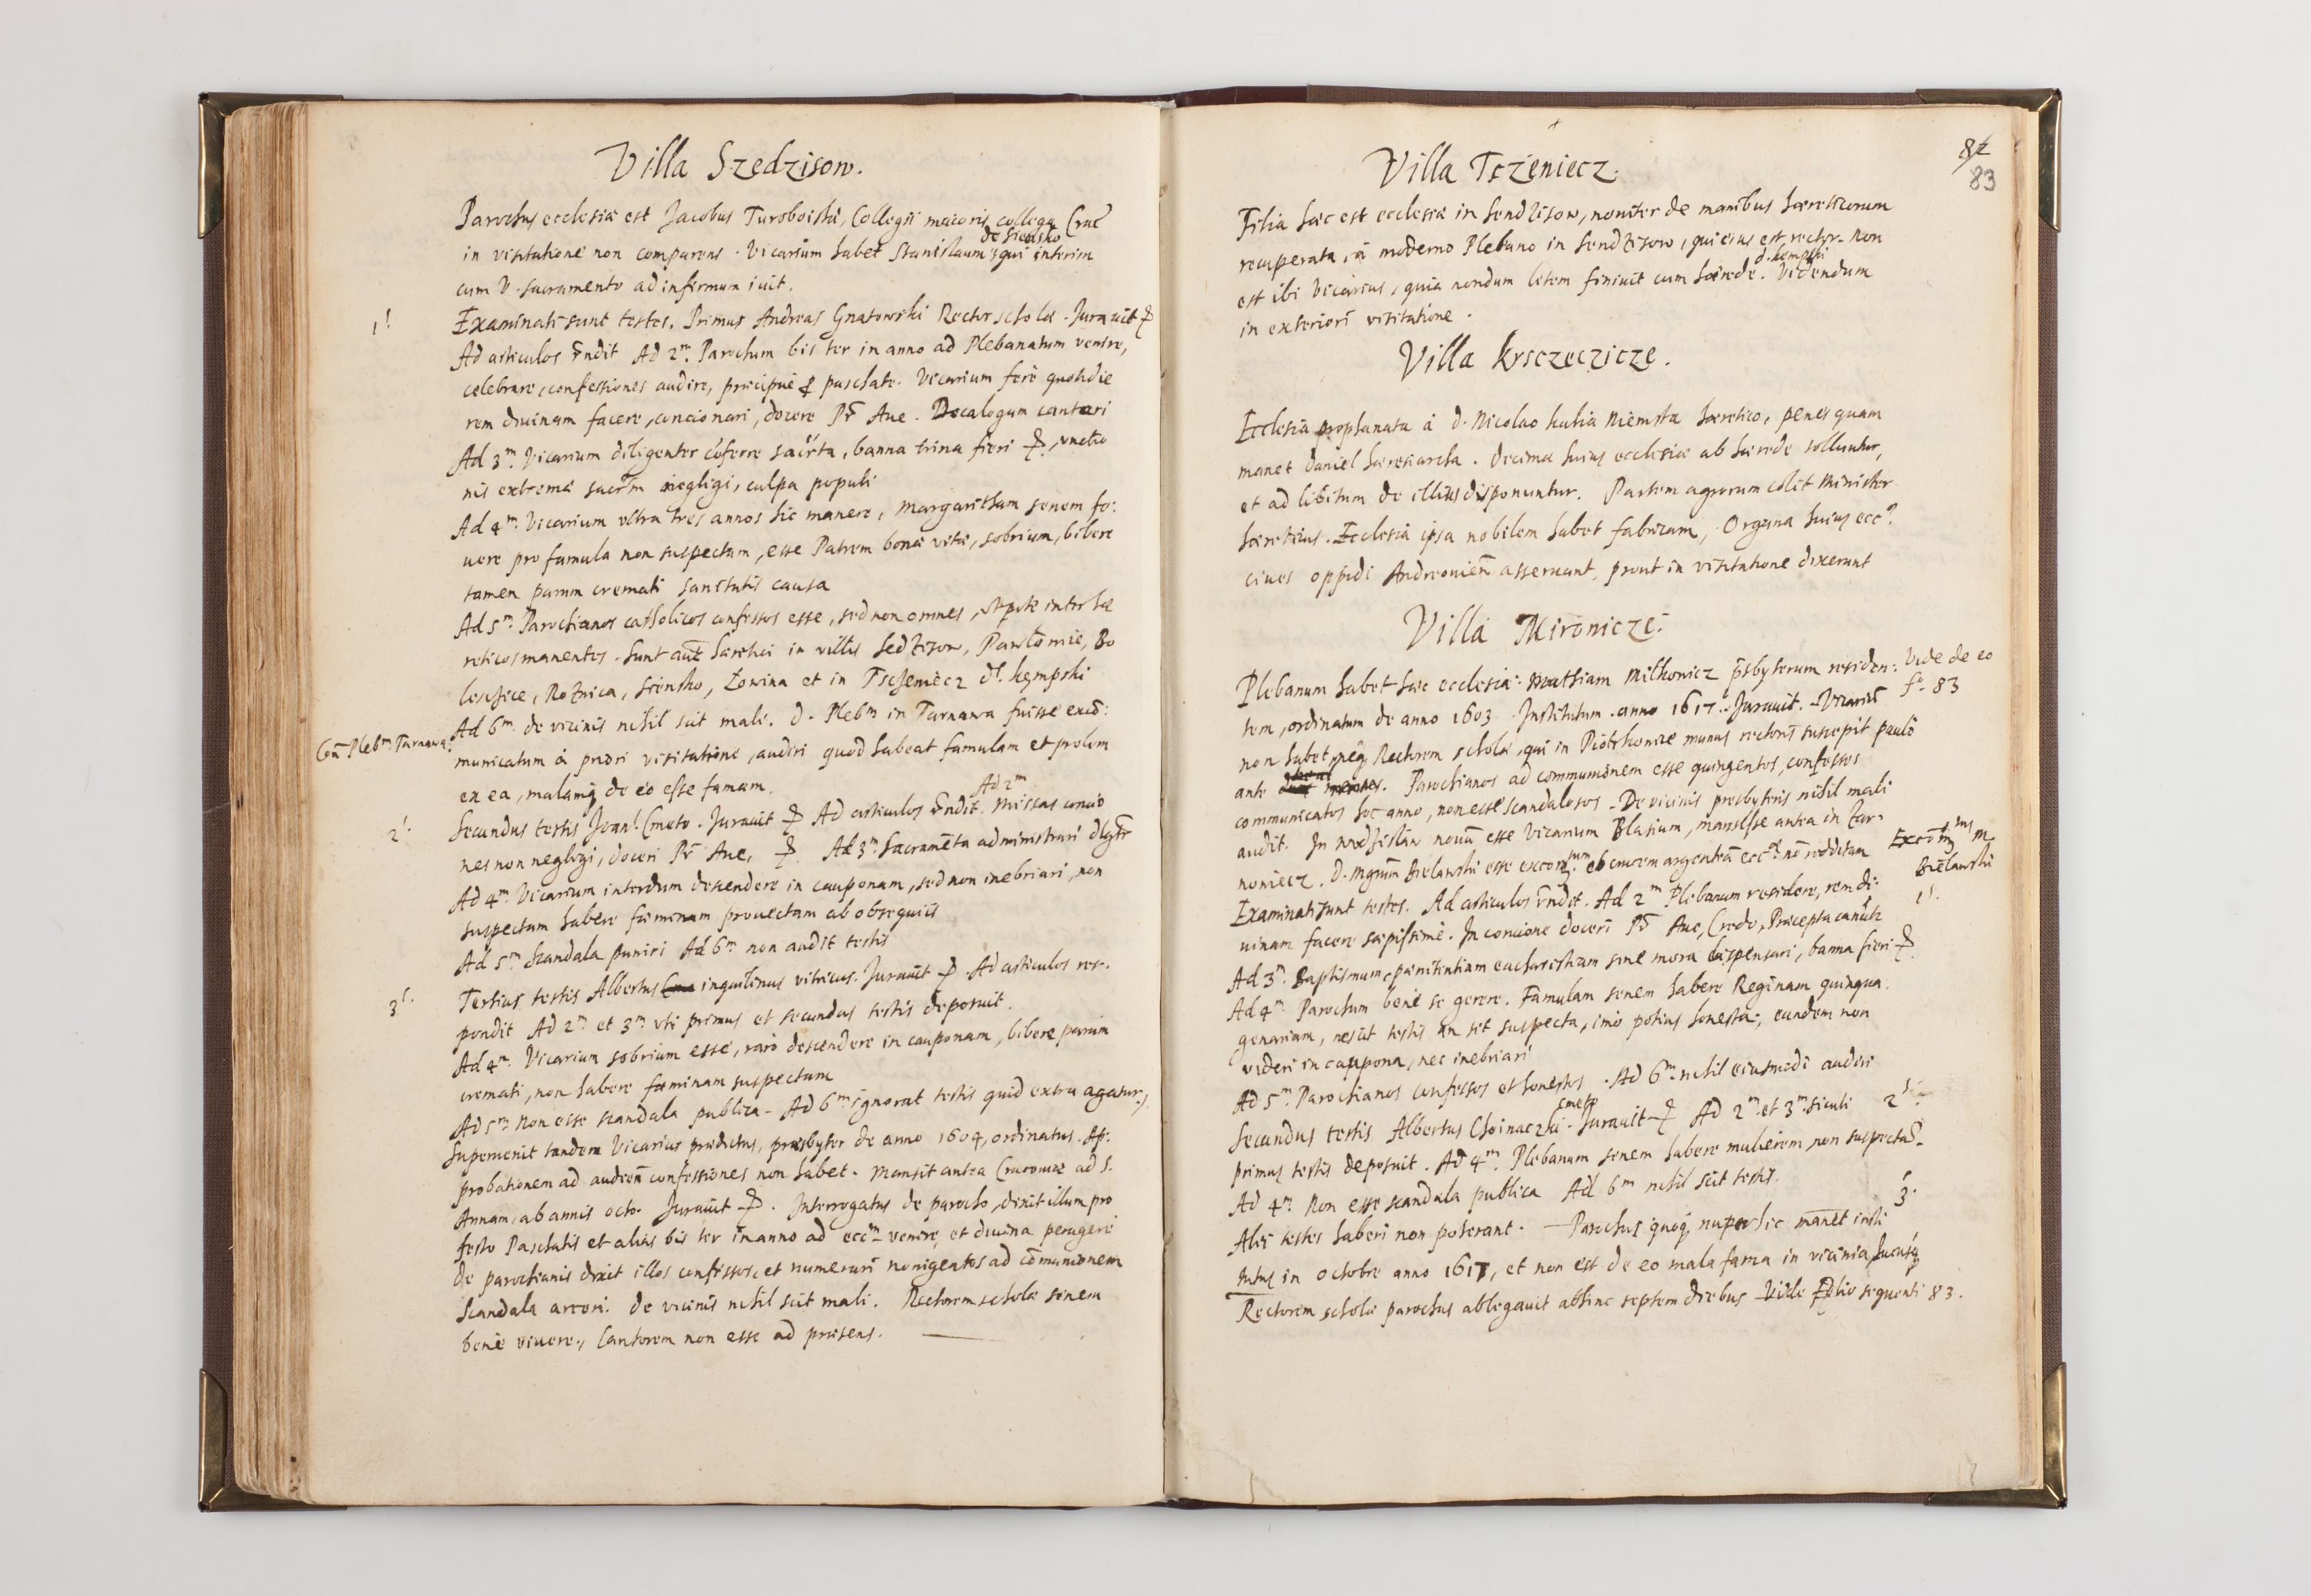 Villa Szedzisow.
Parochus ecclesiæ est Jacobus Turoboiski, Collegii maioris collega Crac̃
de Siensko
in visitatione non comparens. Vicarium habet Stanislaum, qui interim
cum V. sacramento ad infirmum iuit.
1.
Examinati sunt testes. Primus Andreas Gnatowski Rector scholæ. Jurauit
Ad articulos r̃ndit Ad 2m. Parochum bis ter in anno ad Plebanatum venire,
celebrare, confessiones audire, præcipuè paschate. Vicarium ferè quotidie
rem diuinam facere, concionari, docere Pr̃ Aue. Decalogum cantari
Ad 3m. Vicarium diligenter cõferre sacr̃ta, banna trina fieri, vnctio
nis extremæ sacr̃m negligi, culpa populi
Ad 4m. Vicarium vltra tres annos hic manere, Margaritham senem fo:
uere pro famula non suspectam, esse Patrem bonæ vitæ, sobrium, bibere
tamen parum cremati sanitatis causa
Ad 5m. Parochianos catholicos confessos esse, sed non omnes, vtpote inter hæ
reticos manentes. Sunt aũt hæretici in villis Sedzisow, Pawlowice, Bo
leschice, Roznica, Siensko, Lowina et in Tscheniecz d. Kempski
Ad 6m. de vicinis nihil scit mali. D. Plebm in Tarnawa fuisse excõ:
Cõn Plebm. Tarnawa.
municatum à priori visitatione, audiri quod habeat famulam et prolem
ex ea, malamq de eo esse famam.
2.
Ad 2m
Secundus testis Joan. Cmeto. Jurauit Ad articulos r̃ndit. Missas concio
nes non negligi, doceri Pr̃ Aue, Ad 3m. Sacramẽta administrari dilgtr̃
Ad 4m. Vicarium interdum descendere in cauponam, sed non inebriari, non
suspectam habere fæminam prouectam ab obsequiis
Ad 5m Scandala puniri Ad 6m non audit testis
3.
Tertius testis Albertus inquilinus vitricus. Jurauit Ad articulos res-
pondit Ad 2m et 3m vti primus et secundus testis deposuit.
Ad 4m. Vicarium sobrium esse, rarò descendere in cauponam, bibere parùm
cremati, non habere fæminam suspectam
Ad 5m Non esse scandala publica - Ad 6m ignorat testis quid extra agatur.
Superuenit tandem Vicarius prædictus, præsbyter de anno 1604, ordinatus. Ap:
probationem ad audien̄ confessiones non habet. Mansit antea Cracouiæ ad S.
Annam, ab annis octo. Jurauit. Interrogatus de parocho, dixit illum pro
festo Paschatis et aliàs bis ter in anno ad eccm venire, et diuina peragere
de parochianis dixit illos confessos, et numerari nonigentos ad cõmunionem
Scandala arceri. de vicinis nihil scit mali. Rectorem scholæ senem
benè viuere, Cantorem non esse ad præsens.
82
83
Villa Tczeniecz.
Filia hæc est ecclesiæ in Sendzisow, nouiter de manibus hæreticorum
recuperata, à moderno Plebano in Sendzisow, qui eius est rector. Non
d. Kempski
est ibi Vicarius, quia nondum litem finiuit cum hærede. Videndum
in exteriori visitatione.
Villa Krsczeczicze.
Ecclesia prophanata à d. Nicolao Kulia Niemsta hæretico, penes quam
manet Daniel hæresiarcha. Decimæ huius ecclesiæ ab hærede tolluntur,
et ad libitum de illius disponuntur. Partem agrorum colit Minister
hæreticus. Ecclesia ipsa nobilem habet fabricam, Organa huius ecc.
ciues oppidi Andreouien̄ asseruant, prout in visitatione dixerunt
Villa Mironicze.
Plebanum habet hæc ecclesia: Mathiam Milkonicz p̃sbyterum residen:
Vide de eo
fo. 83
tem, ordinatum de anno 1603. Institutum anno 1617. Jurauit. Vicariũ
non habet, neq Rectorem scholæ, qui in Piotrkowice munus rectoris suscepit paulò
ante. Parochianos ad communionem esse quingentos, confessos
communicatos hoc anno, non esse scandalosos. De vicinis presbyteris nihil mali
audit. In nouũ esse Vicarium Blasium, mansisse antea in Zar-
noniecz. D. Bielawski esse ob crucem argenteã ecc. nõ redditam
Bielawski
1.
Examinati sunt testes. Ad articulos r̃ndit. Ad 2m Plebanum residere, rem di:
uinam facere sæpissimè. In concione doceri Pr̃ Aue, Credo, Præcepta
Ad 3m. Baptismum, pænitentiam eucharistiam sine mora dispensari, banna fieri
Ad 4m. Parochum benè se gerere. Famulam senem habere Reginam quinqua
genariam, nescit testis an sit suspecta, imò potius honesta; eundem non
videri in caupona, nec inebriari
Ad 5m. Parochianos confessos et honestos. Ad 6m. nihil eiusmodi audiri
2.
cmeto
Secundus testis Albertus Choinaczki. Jurauit Ad 2m. et 3m. sicuti
primus testis deposuit. Ad 4m. Plebanum senem habere mulierem, non suspectã.
Ad 4m. Non esse scandala publica Ad 6m nihil scit testis.
3.
Alii testes haberi non poterant. Parochus quoq nuper hic manet insti
tutus in octobre anno 1617, et non est de eo mala fama in vicinia hucusq
Rectorem scholæ parochus ablegauit abhinc septem diebus Vide folio sequenti 83.